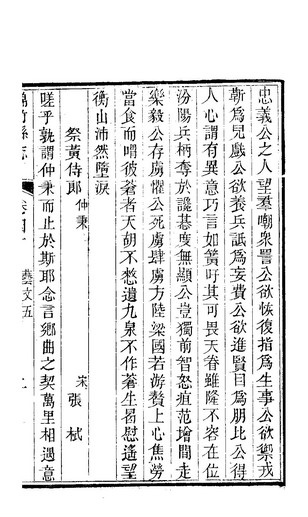 忠義公之人望羣嘲衆詈公欲恢復指爲生事公欲禦戎
斬爲兒戲公欲養兵詆爲妄費公欲進賢目爲朋比公得
人心謂有異意巧言如簧吁其可畏天眷雖隆不容在位
汾陽兵柄奪於讒綦度無顯公豈獨前智怒疽范增間走
樂毅公存虜懼公死虜肆虜方陸梁國若游贅上心焦勞
當食而喟彼蒼者天胡不憗遺九泉不作蒼生曷慰遙望
衡山沛然墮淚
祭黃侍郎仲秉 宋張栻
嗟乎孰謂仲秉而止於斯耶念言鄉曲之契萬里相遇意
縣志 卷四十 藝文五